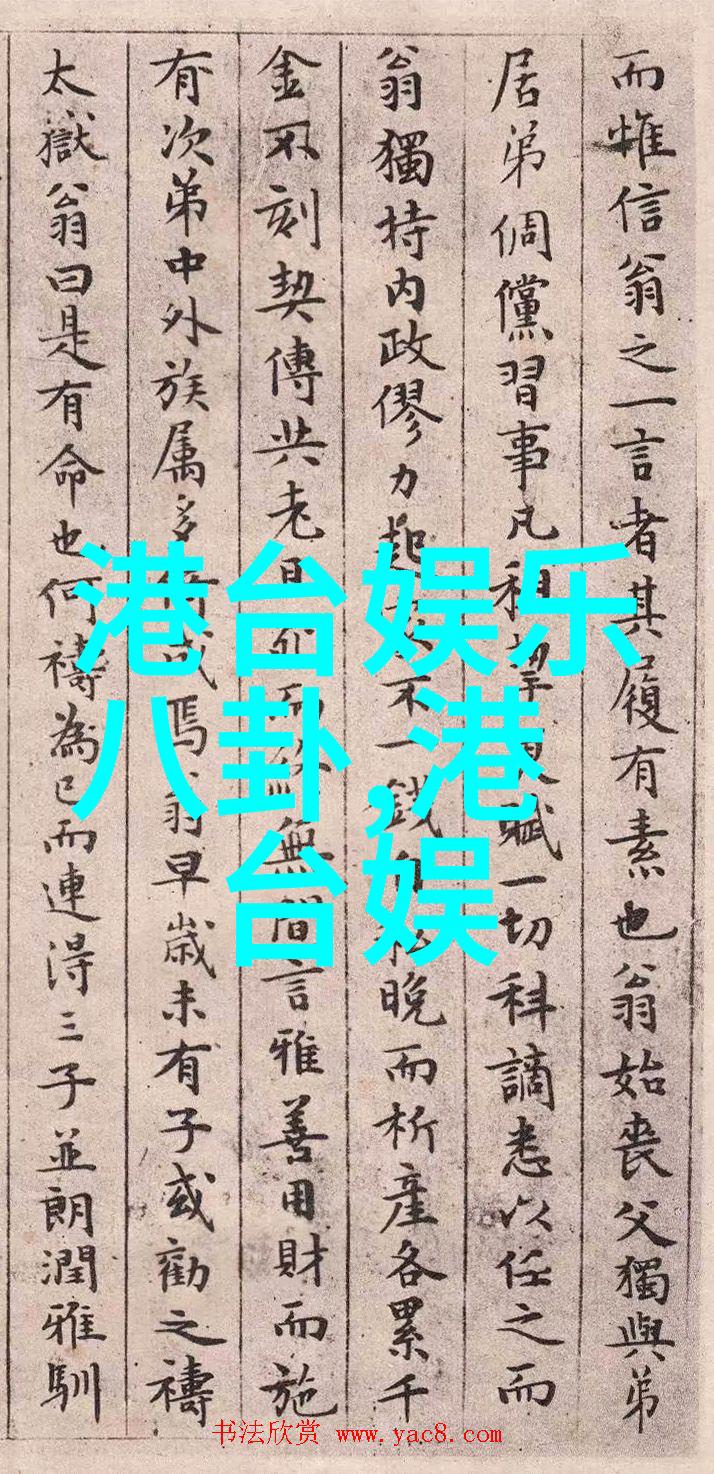 而惟信翁之一言者其履有素也翁始喪父獨與弟
居弟倜儻習事凡租挈賦一切科謫悉以任之而
翁獨持内政僇力起不一錢自私晚而析產各累千
金不刻契傳共老且死而終無間言雅善用財而施
有次弟中外族属多焉翁早歲未有子或勸之禱
太嶽翁曰是有命也何禱為已而連得三子並朗潤雅馴
港台娱乐
八卦,港
台娱
书法欣赏 www.yac8.com